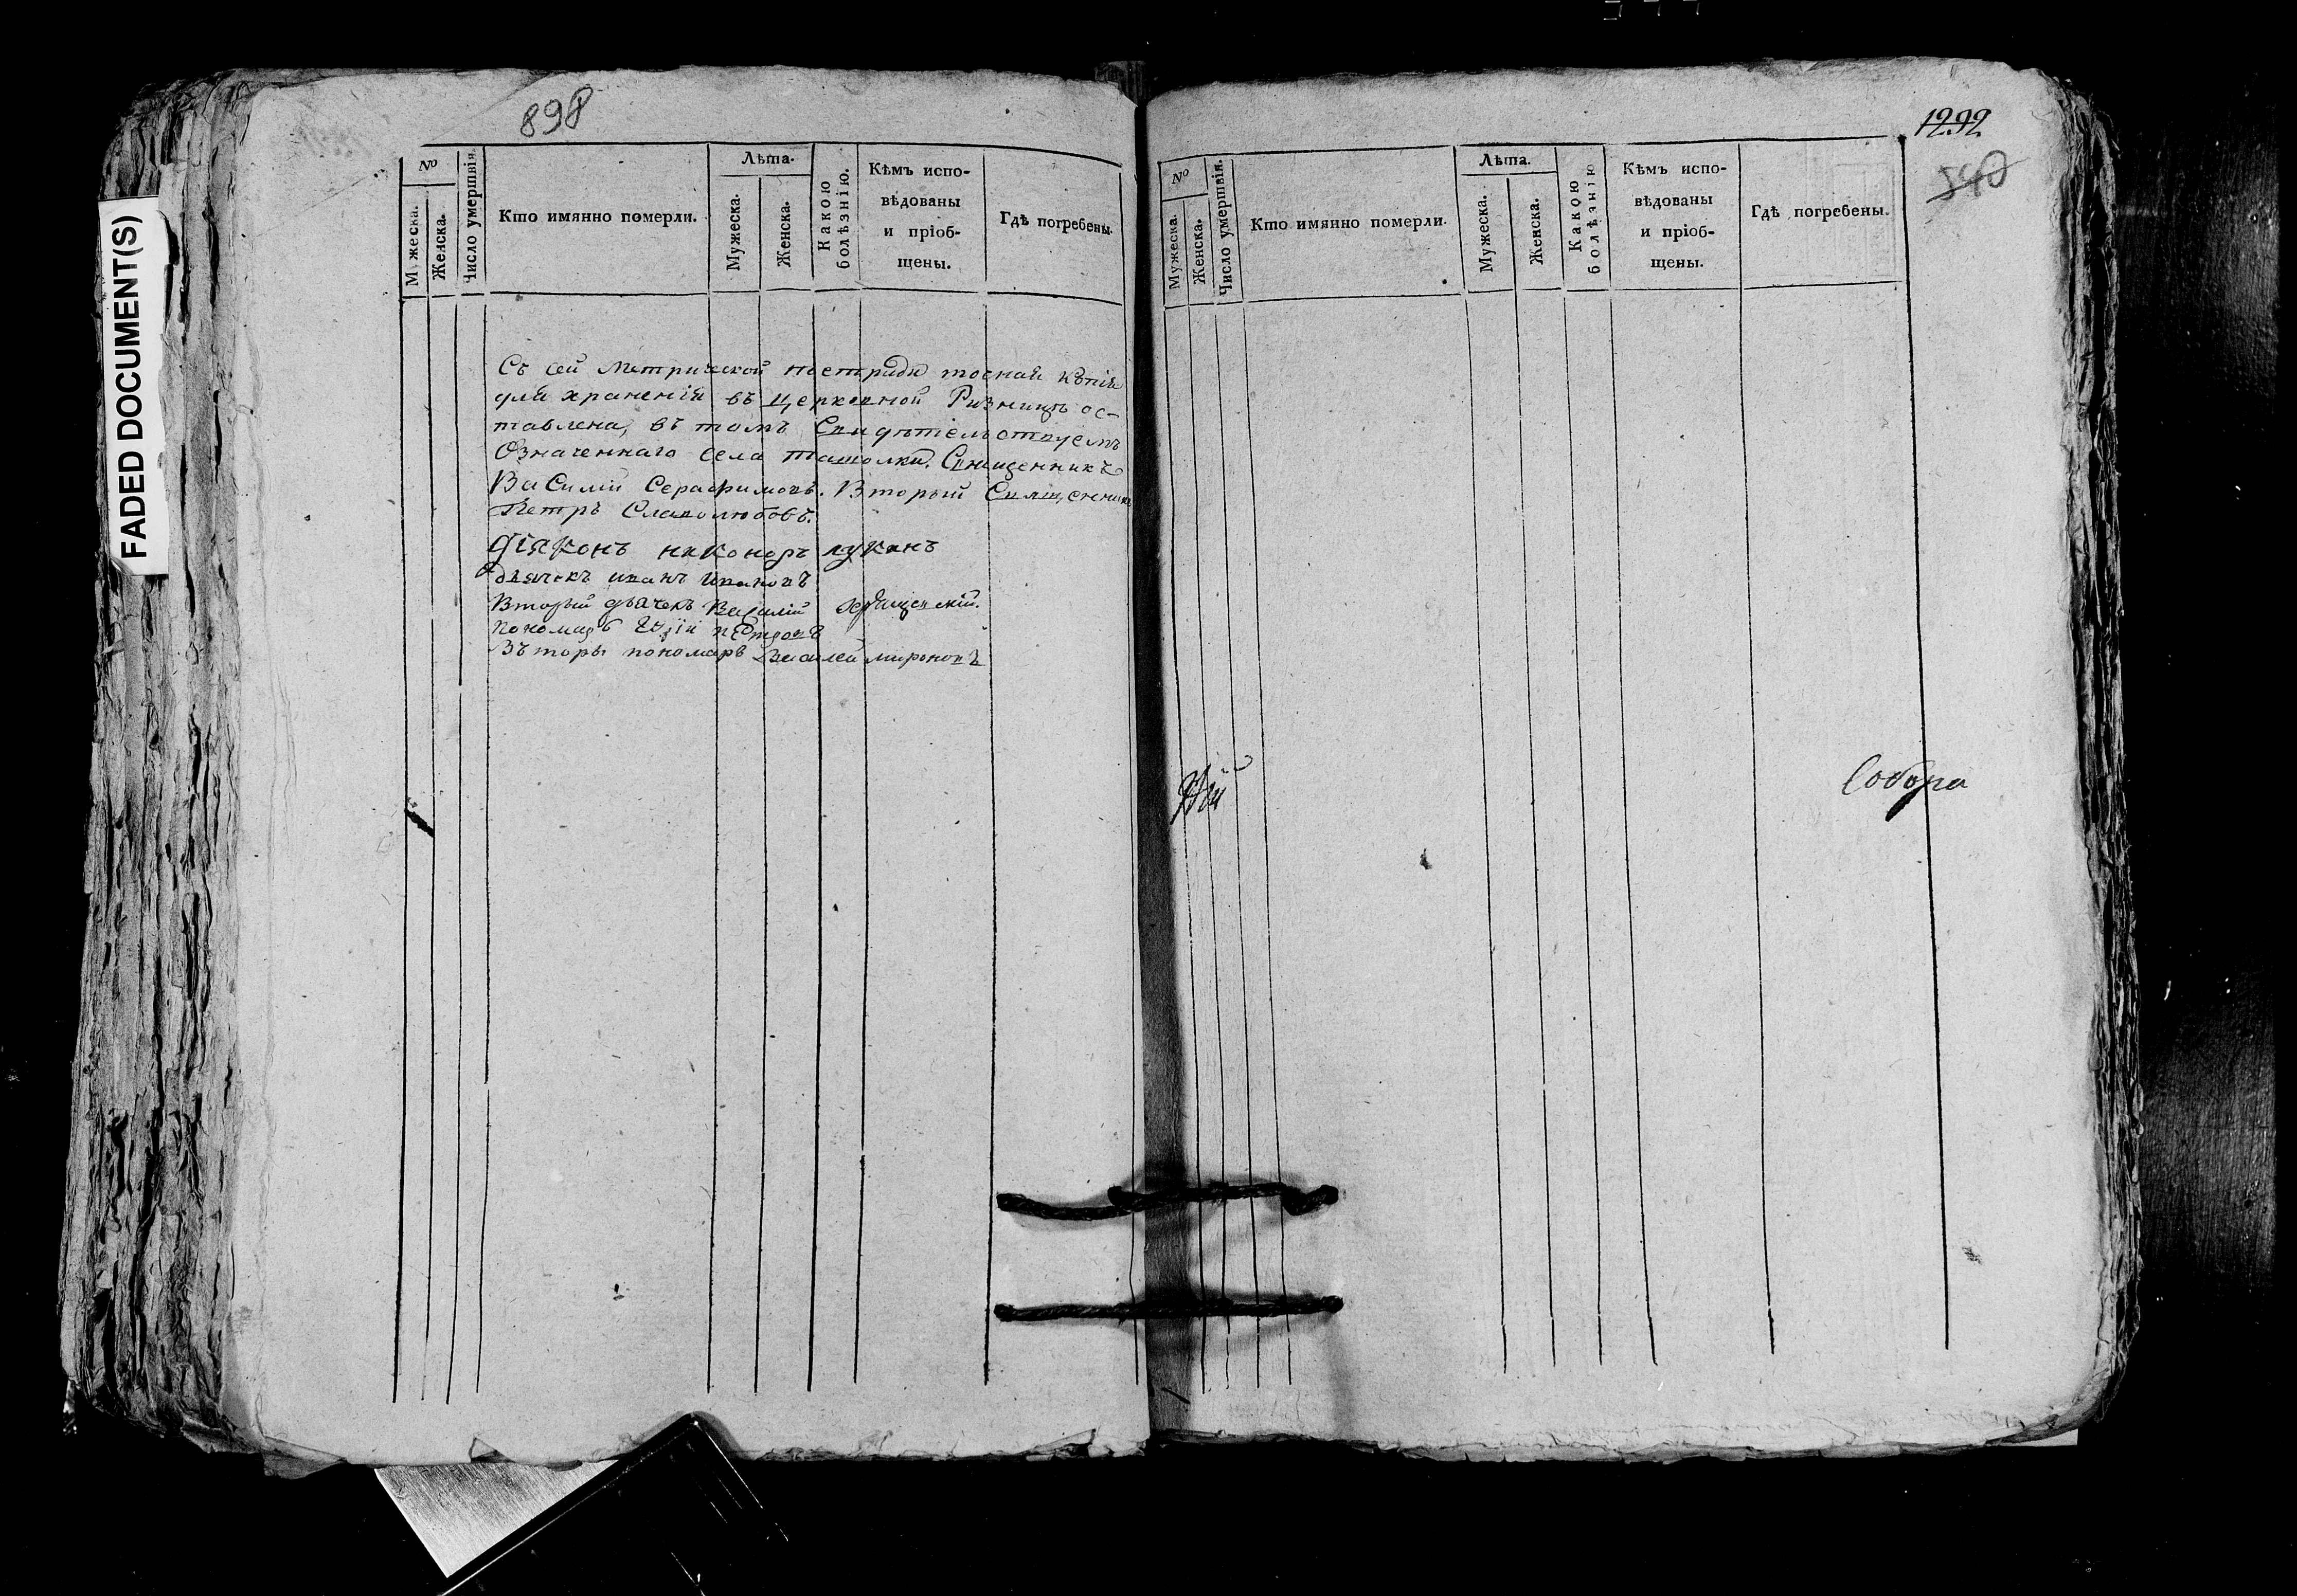 FADED DOCUMENT(S)
898
№
Мужеска.
Женска.
Число умертвія.
Кто имянно померли.
Лѣта.
Мужеска.
Женска.
Какою болѣзнію.
Кѣмъ испо-
вѣдованы
и пріоб-
щены.
Гдѣ погребены.
Съ сей Метрической тетради точная копія
для храненія въ церковной Ризницѣ ос-
тавлена, въ томъ Свидѣтельствуемъ
Означеннаго села Ташолки. Священникъ
Василій Серафимовъ. Вторый Священникъ
Петръ Славолюбовъ.
Діяконъ никоноръ лукинъ
дьячекъ иванъ ивановъ
Вторый дьячекъ Василій
пономарь петровъ
Въторы пономарь Василей мироновъ
1292
540
№
Мужеска.
Женска.
Число умертвія.
Кто имянно померли.
Лѣта.
Мужеска.
Женска.
Какою болѣзнію
Кѣмъ испо-
вѣдованы
и пріоб-
щены.
Гдѣ погребены.
Собора